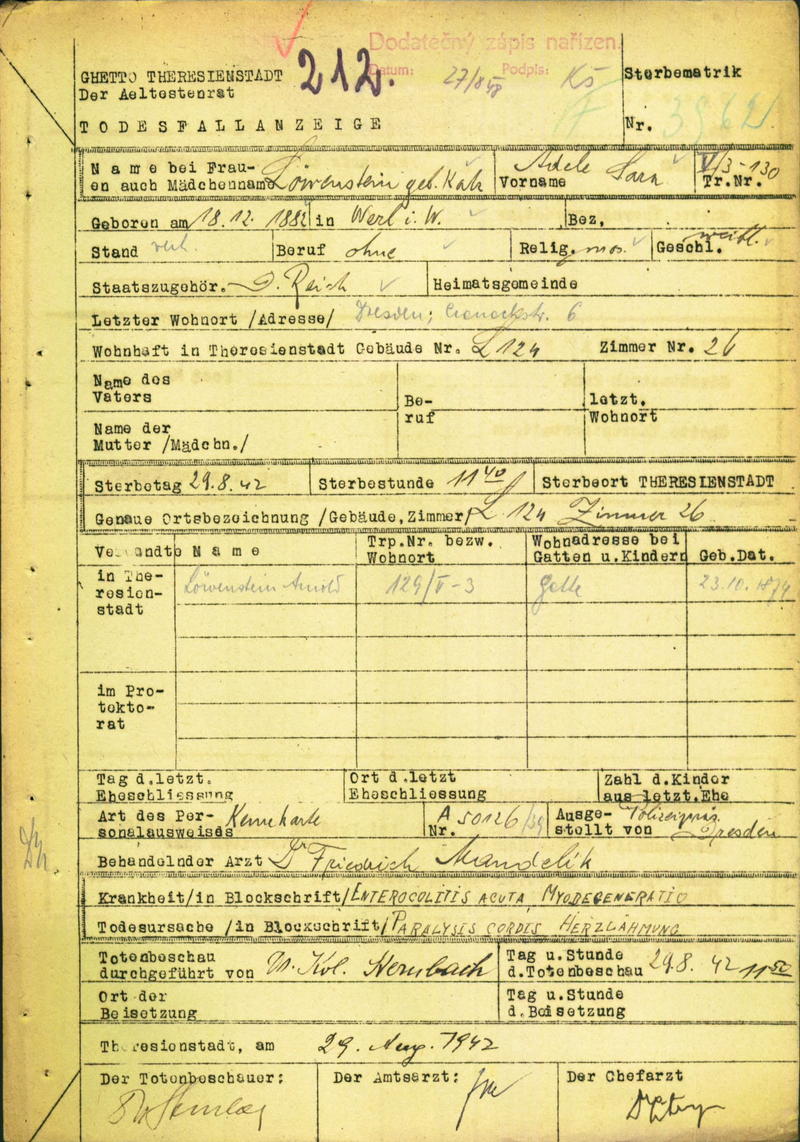 Dodatečný zápis nařízen.
Datum: 27/8 48 Podpis: Kš
212.
GHETTO THERESIENSTADT
Der Aeltestenrat
Sterbematrik
TODESFALLANZEIGE
Nr.
Name bei Frau-
en auch Mädchennam Löwenstein geb. Katz Vorname Adele Sara V/3-130 Tr.Nr.
Geboren am 18.12.1882 in Werl i. W. Bez.
Stand verh. Beruf ohne Relig. mos. Geschl. weibl.
Staatszugehör. D. Reich Heimatsgemeinde
Letzter Wohnort /Adresse/ Dresden, 6
Wohnhaft in Theresienstadt Gebäude Nr. L 124 Zimmer Nr. 26
Name des
Vaters
Be-
ruf
letzt.
Wohnort
Name der
Mutter /Mädchn./
Sterbetag 29.8.42 Sterbestunde 11 40 Sterbeort THERESIENSTADT
Genaue Ortsbezeichnung /Gebäude, Zimmer/ L 124 Zimmer 26
Verwandte Name Trp.Nr. bezw. Wohnort Wohnadresse bei Gatten u.Kindern Geb.Dat.
in The-
resien-
stadt
Löwenstein Arnold 129/V-3 Gatte 23.10.1874
im Pro-
tekto-
rat
Tag d.letzt.
Eheschliessung
Ort d.letzt
Eheschliessung
Zahl d.Kinder
aus letzt.Ehe
Art des Per-
sonalausweises Kennkarte Nr. A 50126/39 Ausge-
stellt von Polizeipräs. Dresden
Behandelnder Arzt Dr Friedrich Mandelik
Krankheit/in Blockschrift/ ENTEROCOLITIS ACUTA, MYODEGENERATIO
Todesursache /in Blockschrift/ PARALYSIS CORDIS HERZLÄHMUNG
Totenbeschau
durchgeführt von
Tag u.Stunde
d.Totenbeschau 29.8.42 11 50
Ort der
Beisetzung
Tag u.Stunde
d.Beisetzung
Theresienstadt, am 29. Aug. 1942
Der Totenbeschauer: Der Amtsarzt: Der Chefarzt